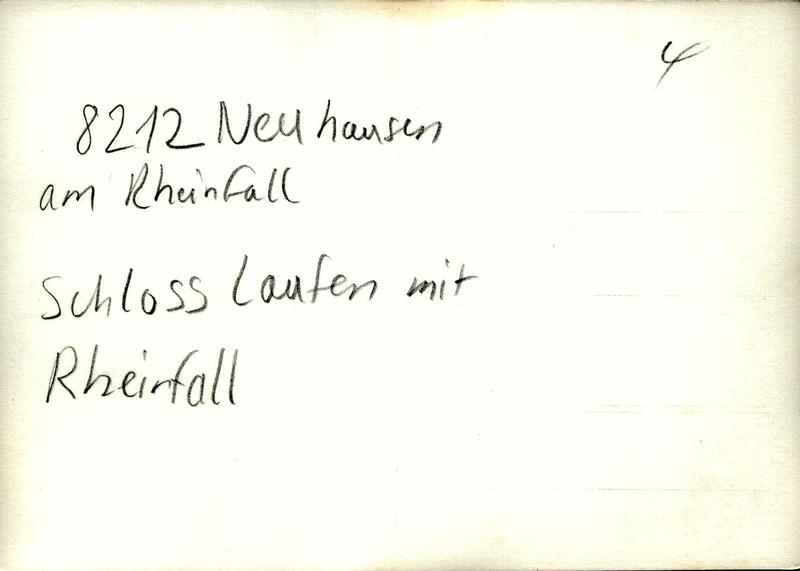 4
8212 Neuhausen
am Rheinfall
Schloss Laufen mit
Rheinfall